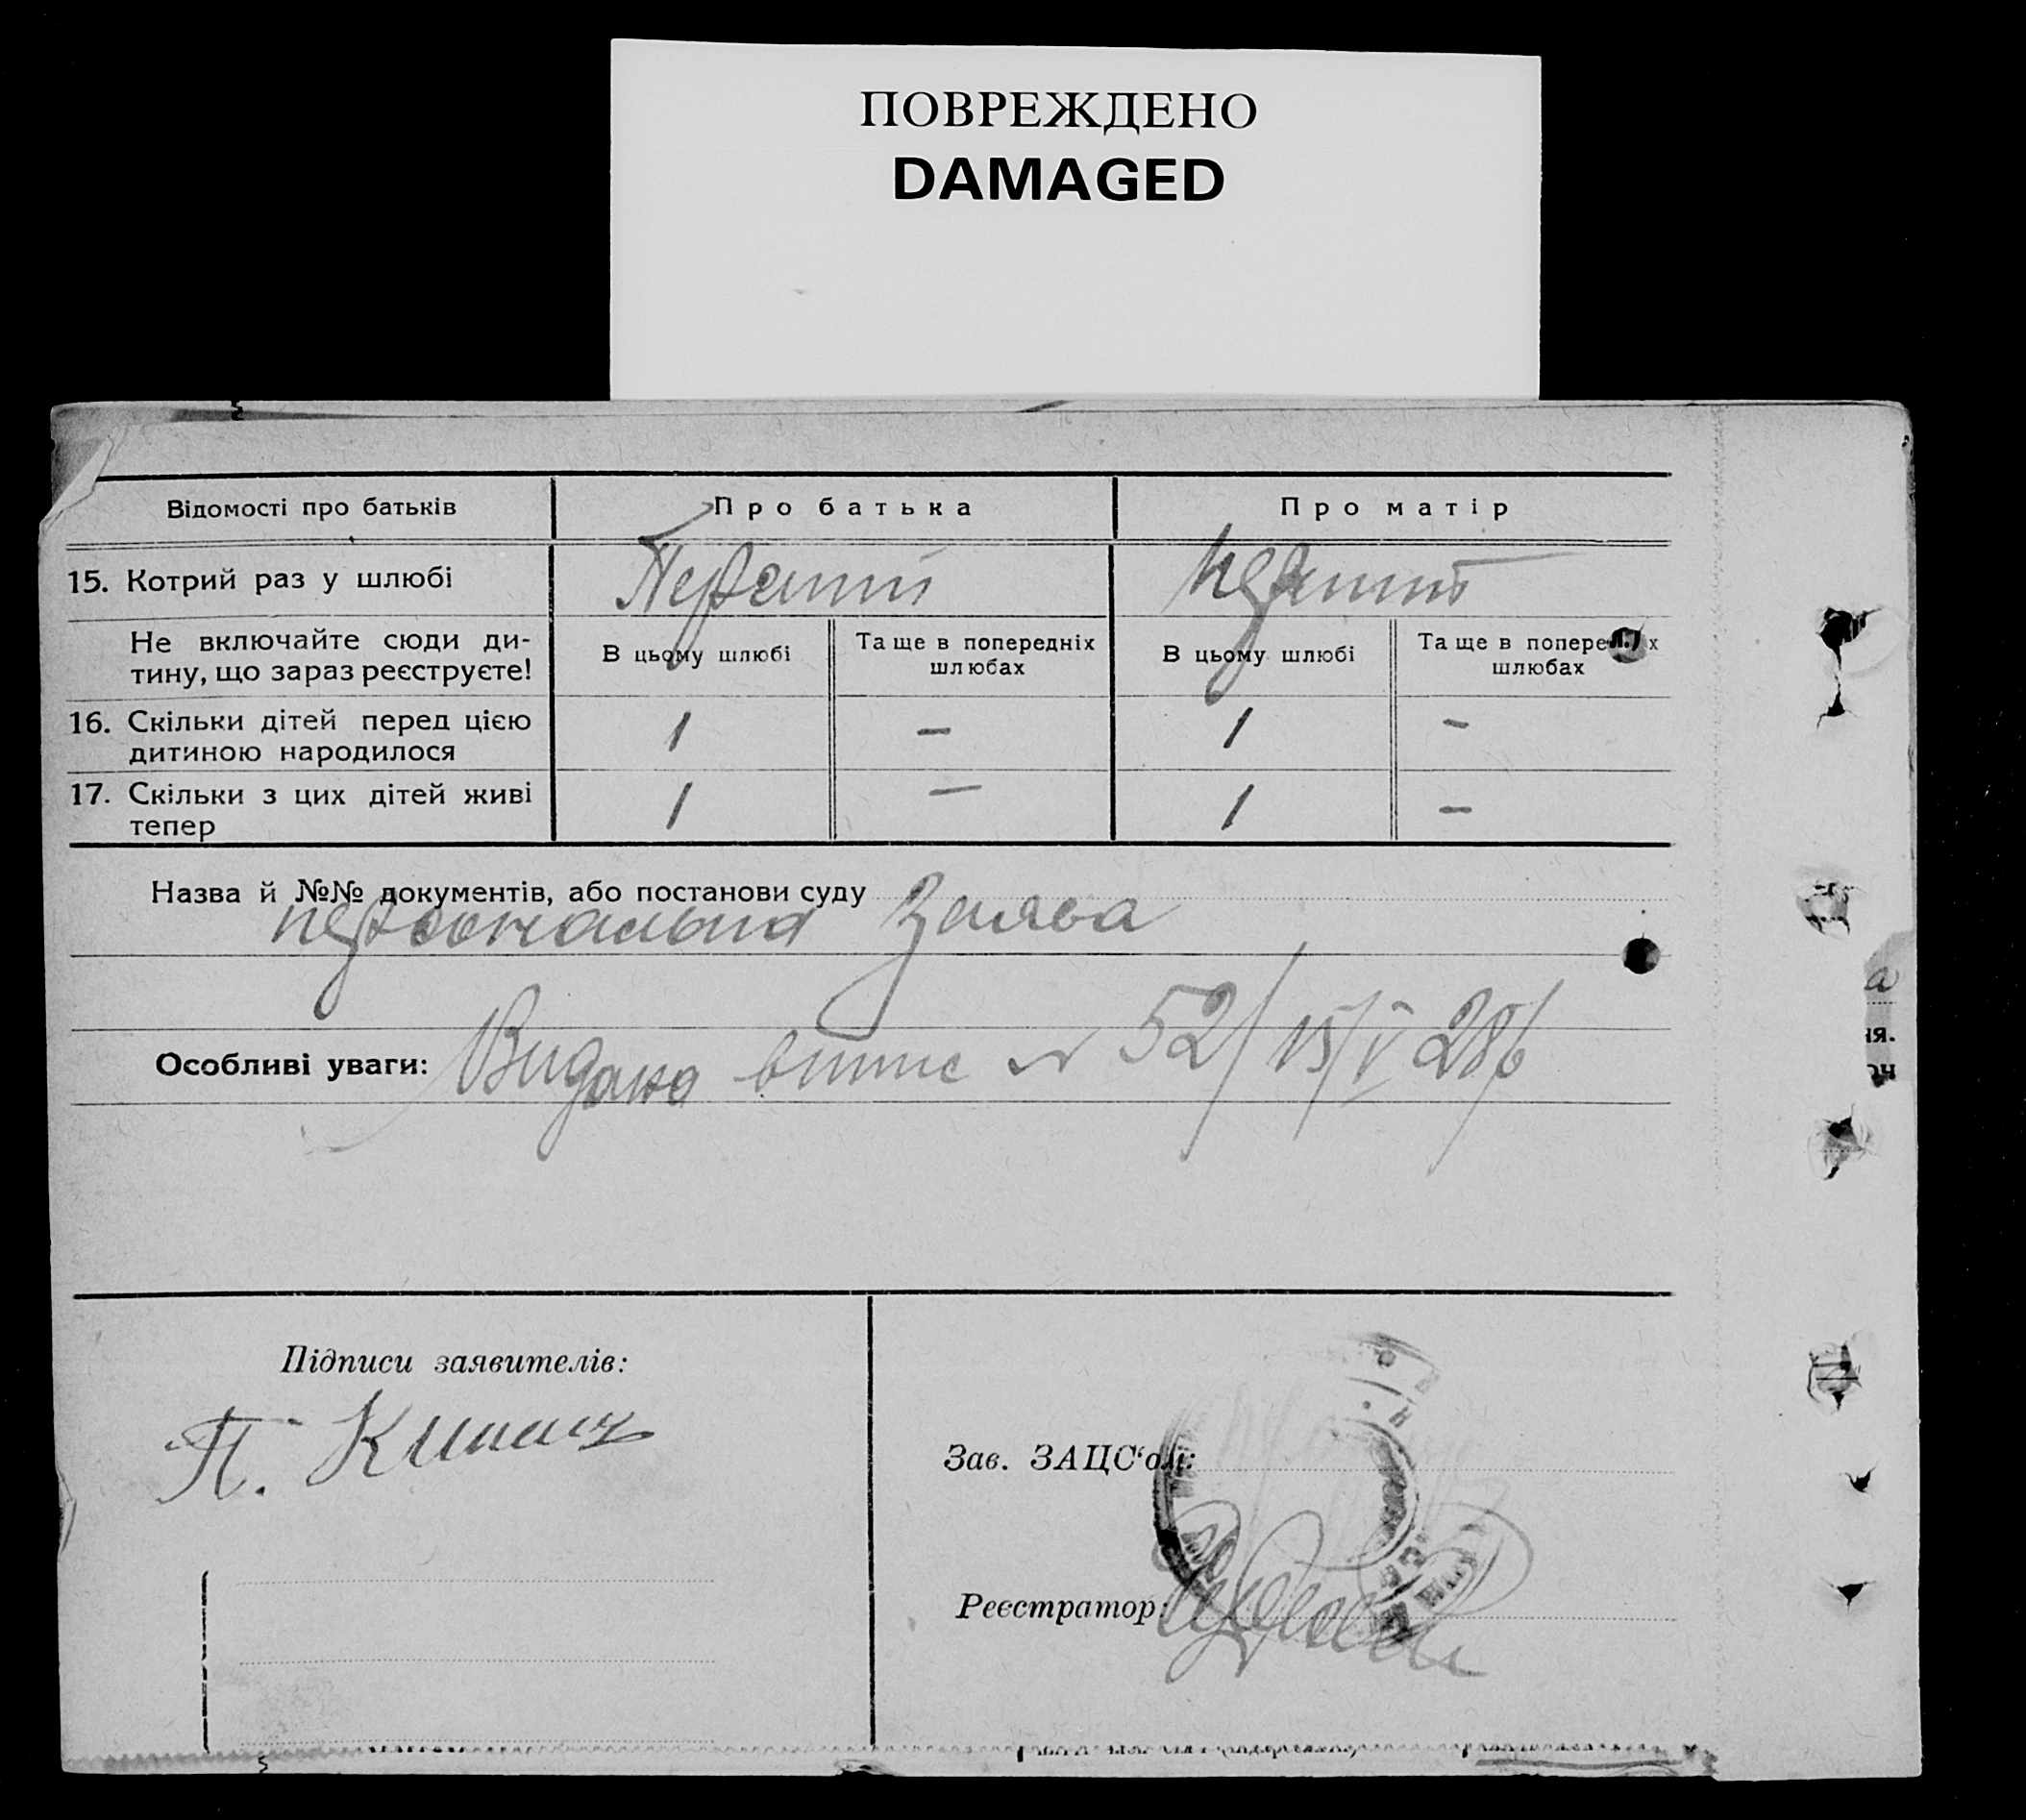 ПОВРЕЖДЕНО
DAMAGED
Відомості про батьків
Про батька
Про матір
15. Котрий раз у шлюбі
Перший
Перший
Не включайте сюди ди-
тину, що зараз реєструєте!
В цьому шлюбі
Та ще в попередніх
шлюбах
В цьому шлюбі
Та ще в попере х
шлюбах
16. Скільки дітей перед цією
дитиною народилося
1
—
1
—
17. Скільки з цих дітей живі
тепер
1
—
1
—
Назва й №№ документів, або постанови суду
персональна Заява
Особливі уваги: Видано витяг № 52/ 15/V 28
Підписи заявителів:
П.
Зав. ЗАЦС‘ом:
Реєстратор: